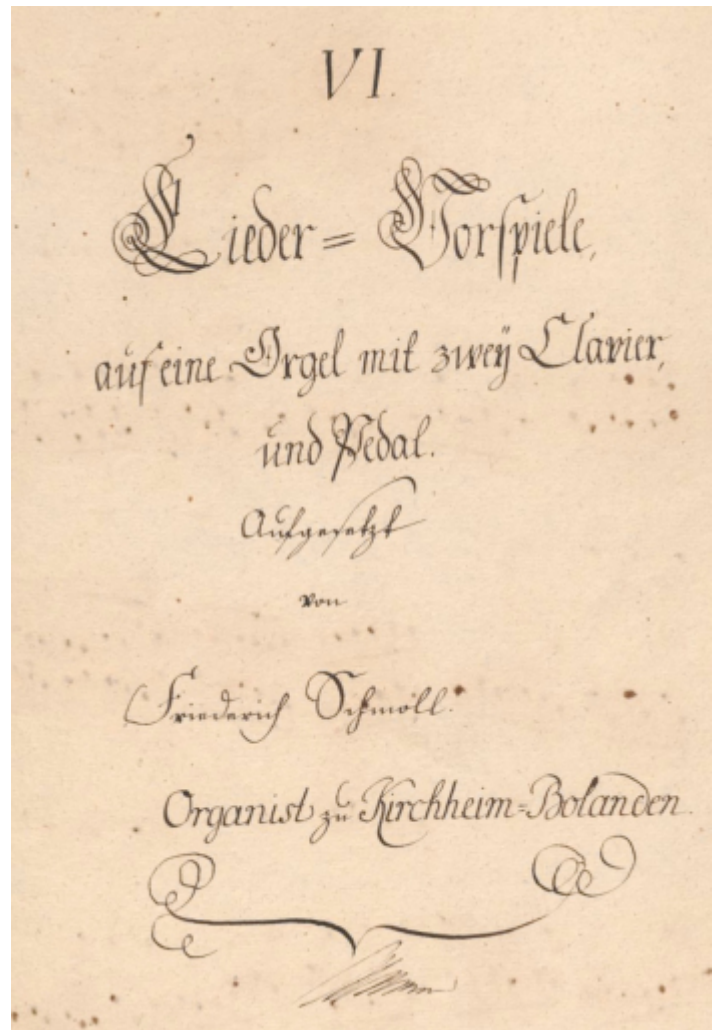 VI.
Lieder = Vorspiele,
auf eine Orgel mit zweÿ Clavier,
und Pedal.
Aufgesetzt
von
Friederich Schmoll.
Organist zu Kirchheim=Bolanden.